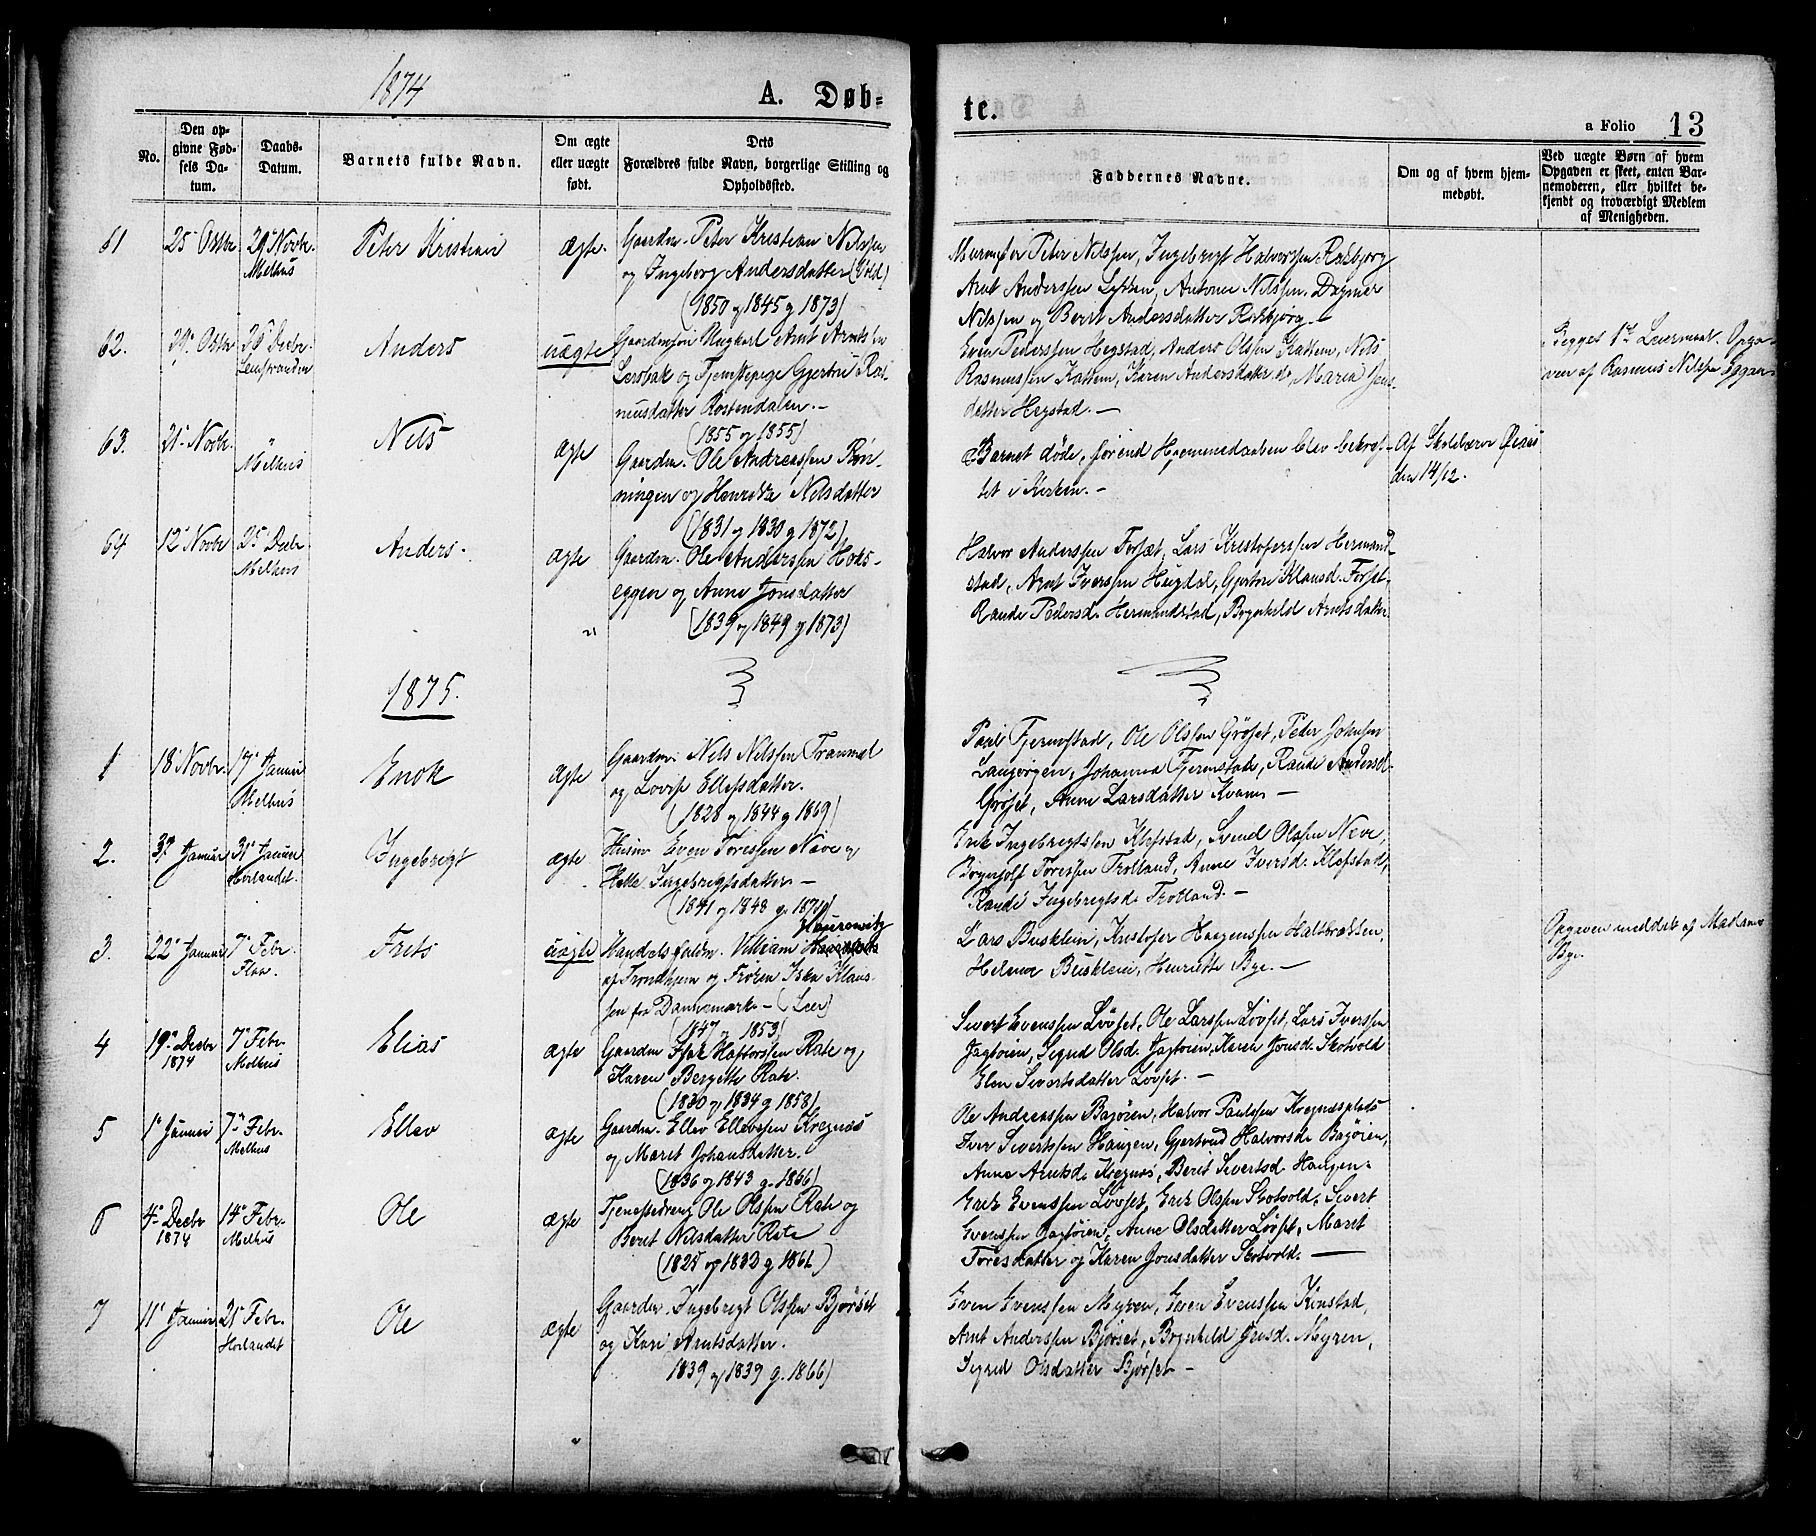 1874
A. Døb-
te.
a Folio 13
No.
Den op-
givne Fød-
sels Da-
tum.
Daabs-
Datum.
Barnets fulde Navn.
Om ægte
eller uægte
født.
Dets
Forældres fulde Navn, borgerlige Stilling og
Opholdssted.
Faddernes Navne.
Om og af hvem hjem-
medøbt.
Ved uægte Børn af hvem
Opgaven er skeet, enten Bar-
nemoderen, eller hvilket be-
kjendt og troværdigt Medlem
af Menigheden.
61
25 Octbr
29 Novbr.
Melhus
Peter Kristian
ægte.
Gaardm. Peter Kristian Nilssen
og Ingeborg Andersdatter (Vold)
(1850 og 1845 g 1873)
Peter Nilssen, Ingebrigt Halvorssen Rakbjørg
Arnt Anderssen Lykken, Antone Nilssen, Dagmar
Nilssen og Berit Andersdatter Rakbjørg.-
62.
29 Octbr
26 Decbr.
Leinstranden
Anders
uægte
Gaardmsøn Ungkarl Arnt Arntsen
Lersbak og Tjenestepige Gjertrue Ras-
musdatter Rostendalen.-
(1855 og 1855)
Even Pederssen Hegstad, Anders Olssen Kattem, Nils
Rasmussen Kattem, Karen Andersdatter do, Marea Jens-
datter Hegstad.-
Begges 1st Leiermaal. Opga-
ven af Rasmus Nilssen Eggen
63.
21 Novbr.
"
Melhus
Nils
ægte
Gaardm. Ole Andreassen Røn-
ningen og Henrikke Nilsdatter
(1831 og 1830 g 1872)
Barnet døde, førend Hjemmedaaben blev bekræf-
tet i Kirken.-
Af Skolelærer
den 14/12.
64
12 Novbr
25 Decbr
Melhus
Anders.
ægte
Gaardm. Ole Anderssen Hoks-
eggen og Anne Jonsdatter
(1839 og 1849 g 1873)
Halvor Anderssen Forset, Lars Kristoferssen Hermand-
stad, Arnt Iverssen Hugdal, Gjertrue Klausd. Forset,
Randi Pedersd. Hermandstad, Brynhild Arntsdatter
1875.
1
18 Novbr.
17 Januar
Melhus
Enok
ægte
Gaardm. Nils Nilssen Trammel
og Lovise Ellefsdatter.
(1828 og 1844 g 1869)
Paul Tjernstad, Ole Olssen Grøset, Peder Johnsen
Langørgen, Johanna Tjernstad, Randi Andersd.
Grøset, Anne Larsdatter Kvam -
2.
3 Januar
31 Januar
Horlandet.
Ingebrigt
ægte
Husm Even Toressen Næve og
Ingebrigtsdatter -
(1841 og 1848 g. 1871)
Erik Ingebrigtssen Klefstad, Svend Olssen Neve,
Toressen Trotland, Anne Iversd. Klefstad,
Randi Ingebrigtsd. Trotland.-
3.
22 Januar
7 Febr.
Flaa
Frits
uægte
Handelsfuldm. Villiam
af Trondhjem og Frøken Klaus-
sen fra Dannemark - (Leer)
(1847 og 1853)
Lars Busklein, Kristofer Haagenssen Haltbrekken,
Helene Busklein, Henriette Bye.-
Opgaven meddelt af Madame
Bye.
4
19 Decbr
1874
7 Febr.
Melhus
Elias
ægte
Gaardm Isak Haftorssen Rate og
Karen Bergitte Rate.
(1830 og 1834 g 1858)
Sivert Evenssen Løvset, Ole Larssen Løvset, Lars Iverssen
Jagtøien, Sigrid Olsd. Jagtøien, Karen Jonsd. Skotvold
Elen Sivertsdatter Løvset.-
5
1 Januar
7 Febr.
Melhus
Ellev
ægte
Gaardm. Ellev Ellevssen Kregnæs
og Marit Johansdatter.
(1836 og 1843 g. 1866)
Ole Andreassen Bagøien, Halvor Paulssen Kregnæsplads
Iver Sivertssen Haugen, Gjertrud Halvorsd. Bagøien,
Anna Arntsd. Kregnæs, Berit Sivertsd. Haugen.
6
4 Decbr
1874
14 Febr.
Melhus
Ole
ægte
Tjenestedreng Ole Olssen Rate og
Berit Nilsdatter Rate
(1825 og 1832 g 1861)
Erik Evenssen Løvset, Erik Olssen Skotvold, Sivert
Evenssen Jagtøien, Anne Olsdatter Løvset, Marit
Toresdatter og Karen Jonsdatter Skotvold.-
7
11 Januar
21 Febr.
Horlandet
Ole
ægte
Gaardm. Ingebrigt Olssen Bjørset
og Kari Arntsdatter.
1839 og 1839 g. 1866)
Even Evenssen Myren, Even Evenssen Kinstad,
Arnt Anderssen Bjørset, Brynhild Jensd. Myren,
Sigrid Olsdatter Bjørset -